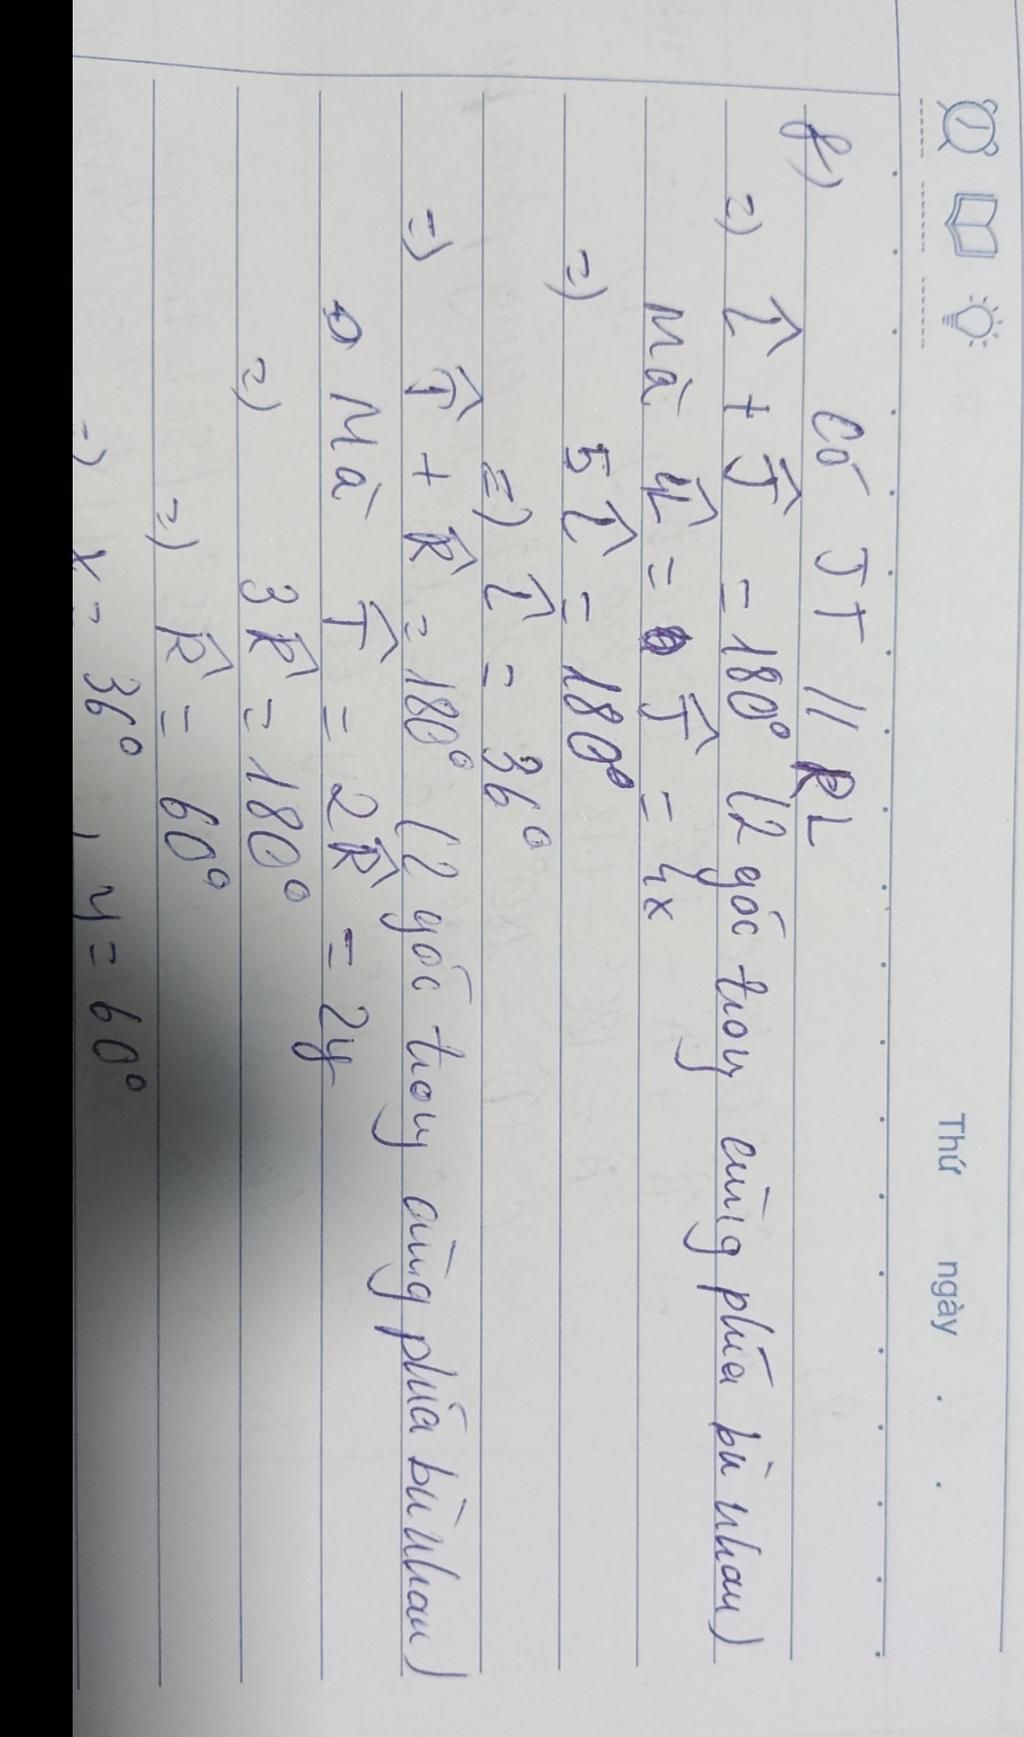 Thứ ngày . .
f) Có JT // RL
=) L̂ + Ĵ = 180° (2 góc trong cùng phía bù nhau)
Mà 4L̂ = Ĵ = 4x
=) 5L̂ = 180°
=) L̂ = 36°
=) T̂ + R̂ = 180° (2 góc trong cùng phía bù nhau)
Mà T̂ = 2R̂ = 2y
=) 3R̂ = 180°
=) R̂ = 60°
=) x = 36°, y = 60°